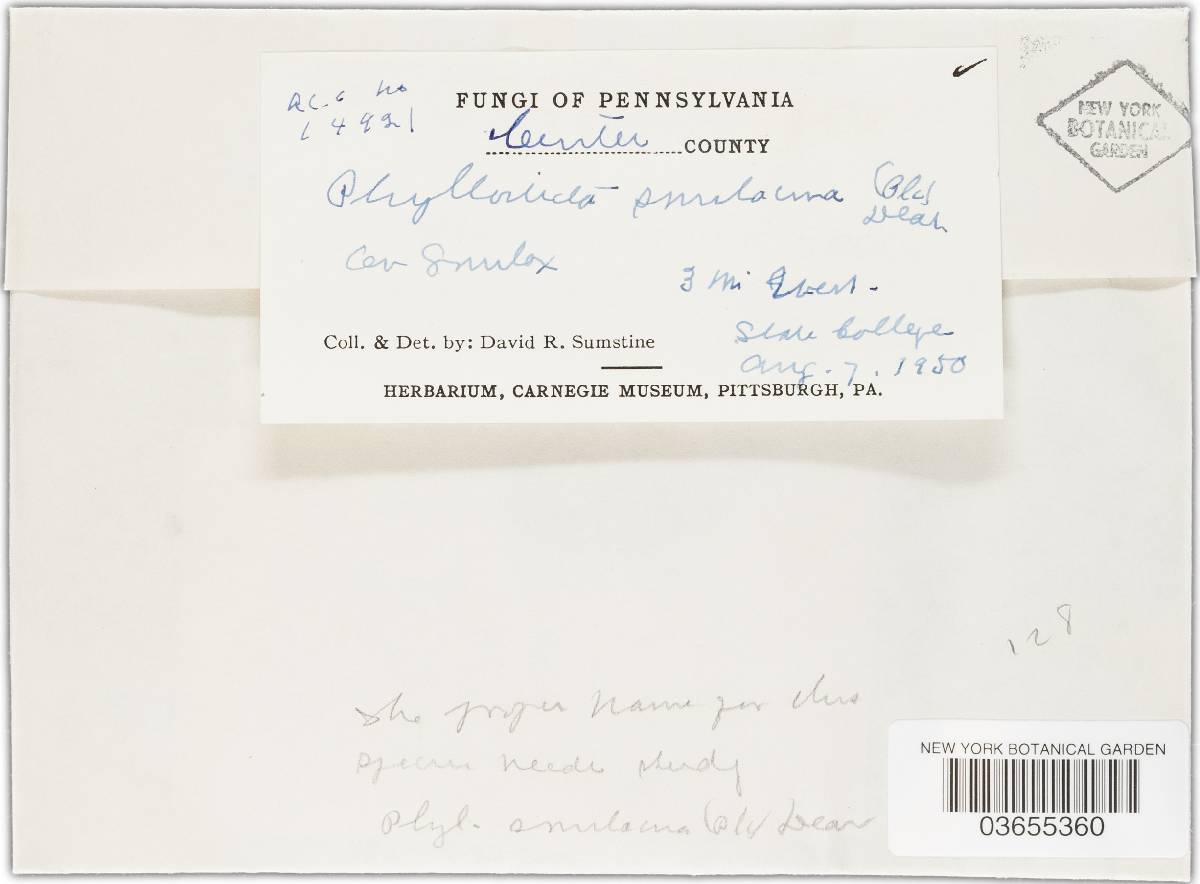 Acc no
14921
FUNGI OF PENNSYLVANIA
Center COUNTY
Phyllosticta smilacina (Pk)
Dear
on Smilax
3 mi West -
State College
Aug. 7. 1950
Coll. & Det. by: David R. Sumstine
HERBARIUM, CARNEGIE MUSEUM, PITTSBURGH, PA.
NEW YORK
BOTANICAL
GARDEN
128
The proper name for this
species needs study
Phyl. smilacina (Pk) Dear
NEW YORK BOTANICAL GARDEN
03655360